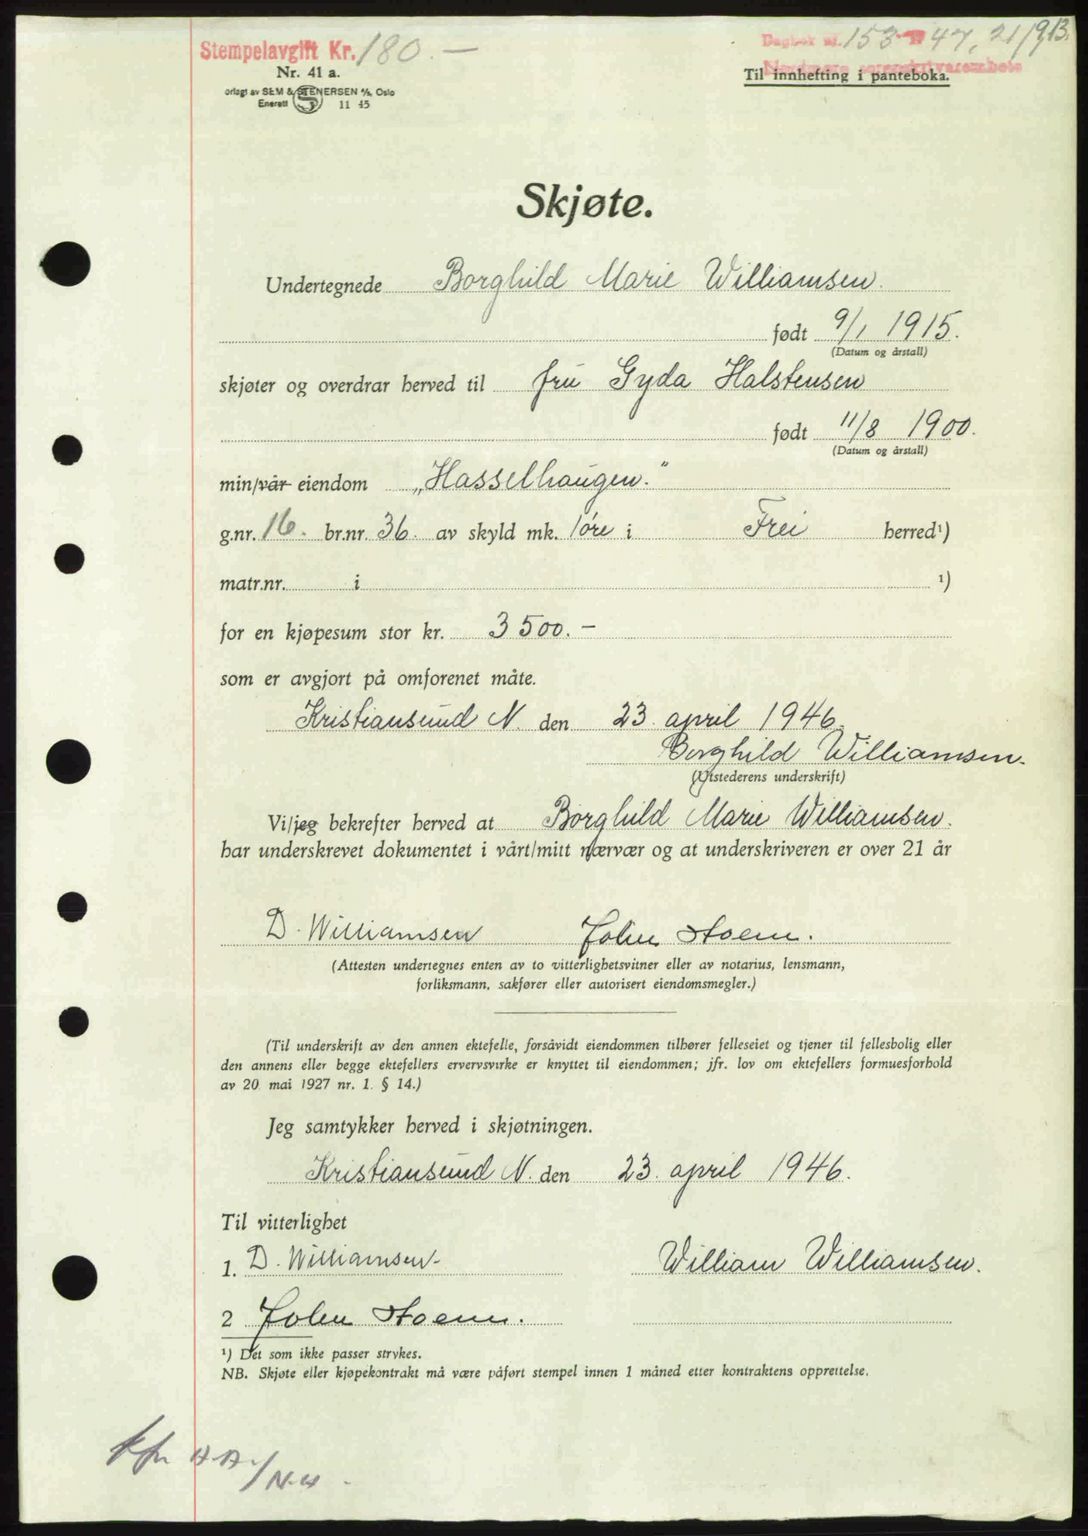 Stempelavgift Kr. 180.—
Dagbok nr. 153 - 1947, 21/9 13.
Nordmøre sorenskriverembete
Nr. 41 a.
Til innhefting i panteboka.
orlagt av SEM & STENERSEN A/s, Oslo
Enerett S 11 45
Skjøte.
Undertegnede Borghild Marie Williamsen.
født 9/1 1915.
(Datum og årstall)
skjøter og overdrar herved til fru Gyda Halstensen
født 11/8 1900.
(Datum og årstall)
min/vår eiendom „Hasselhaugen.“
g.nr. 16. br.nr. 36. av skyld mk. 1 øre i Frei herred¹)
matr.nr. i ¹)
for en kjøpesum stor kr. 3500.—
som er avgjort på omforenet måte.
Kristiansund N. den 23. april 1946.
Borghild Williamsen.
(Utstederens underskrift)
Vi/jeg bekrefter herved at Borghild Marie Williamsen.
har underskrevet dokumentet i vårt/mitt nærvær og at underskriveren er over 21 år
D. Williamsen John Stoem.
(Attesten undertegnes enten av to vitterlighetsvitner eller av notarius, lensmann,
forliksmann, sakfører eller autorisert eiendomsmegler.)
(Til underskrift av den annen ektefelle, forsåvidt eiendommen tilhører felleseiet og tjener til fellesbolig eller
den annens eller begge ektefellers ervervsvirke er knyttet til eiendommen; jfr. lov om ektefellers formuesforhold
av 20. mai 1927 nr. 1. § 14.)
Jeg samtykker herved i skjøtningen.
Kristiansund N. den 23. april 1946.
Til vitterlighet
1. D. Williamsen. William Williamsen.
2 John Stoem.
¹) Det som ikke passer strykes.
NB. Skjøte eller kjøpekontrakt må være påført stempel innen 1 måned etter kontraktens opprettelse.